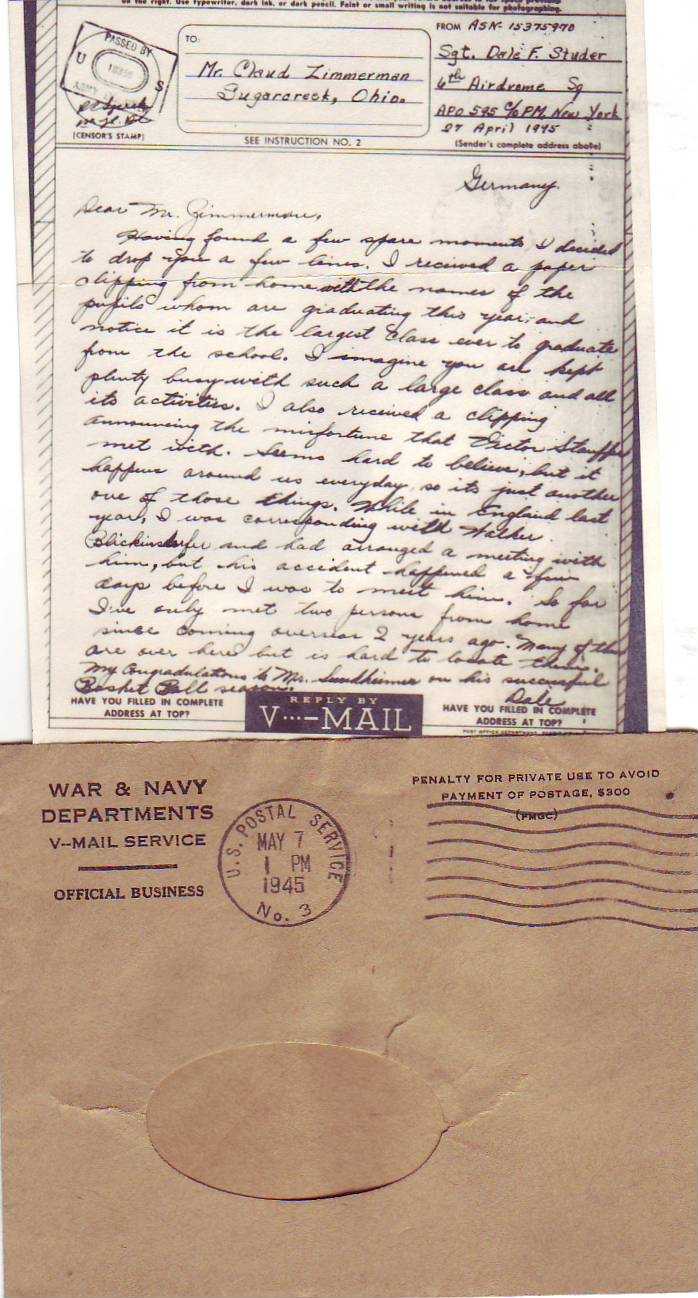 on the right. Use typewriter, dark ink, or dark pencil. Faint or small writing is not suitable for photographing.
PASSED BY
U S
ARMY
(CENSOR'S STAMP)
TO:
Mr. Claud Zimmerman
Sugarcreek, Ohio.
SEE INSTRUCTION NO. 2
FROM ASN- 15375970
Sgt. Dale F. Studer
6th Airdrome Sq
APO 595 c/o PM. New York
27 April 1945
(Sender's complete address above)
Germany.
Dear Mr. Zimmerman,
Having found a few spare moments I decided
to drop you a few lines. I received a paper
clipping from home with the names of the
pupils whom are graduating this year, and
notice it is the largest class ever to graduate
from the school. I imagine you are kept
plenty busy with such a large class and all
its activities. I also received a clipping
announcing the misfortune that Victor Stauffer
met with. Seems hard to believe, but it
happens around us everyday, so its just another
one of those things. While in England last
year, I was corresponding with Walker
and had arranged a meeting with
him, but his accident happened a few
days before I was to meet him. So far
I've only met two persons from home
since coming oversear 2 years ago. Many of them
are over here but is hard to locate them.
My Congradulations to Mr. Sundheimer on his successful
Basket Ball season.
Dale
HAVE YOU FILLED IN COMPLETE
ADDRESS AT TOP?
REPLY BY
V···—MAIL
HAVE YOU FILLED IN COMPLETE
ADDRESS AT TOP?
WAR & NAVY
DEPARTMENTS
V--MAIL SERVICE
OFFICIAL BUSINESS
U.S. POSTAL SERVICE
MAY 7
1 PM
1945
No. 3
PENALTY FOR PRIVATE USE TO AVOID
PAYMENT OF POSTAGE, $300
(PMGC)